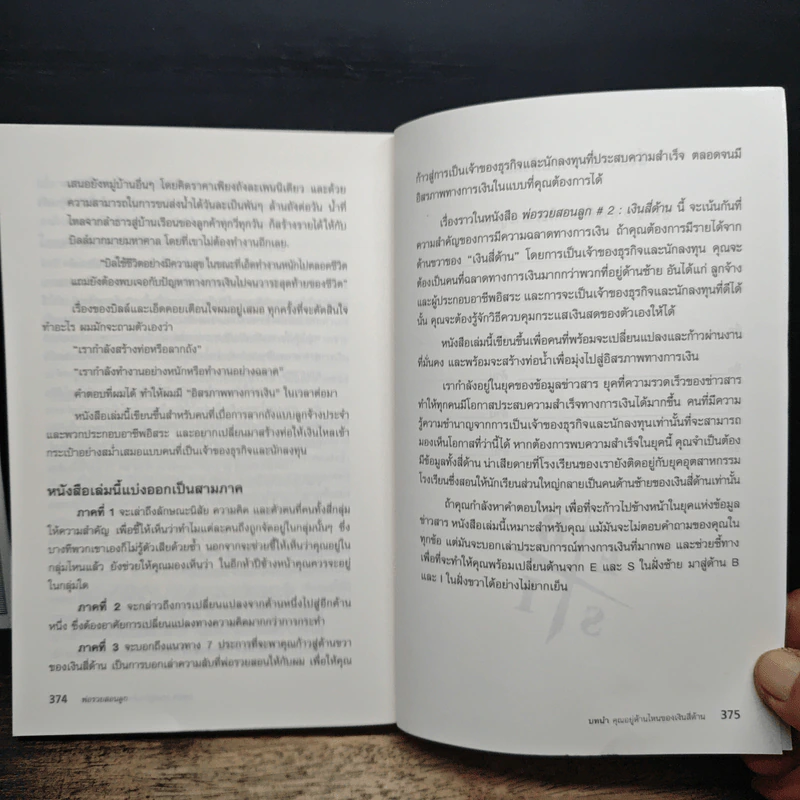 เสนอยังหมู่บ้านอื่นๆ โดยคิดราคาเพียงถังละเพนนีเดียว และด้วย
ความสามารถในการขนส่งน้ำได้วันละเป็นพันๆ ล้านถังต่อวัน น้ำที่
ไหลจากลำธารสู่บ้านเรือนของลูกค้าทุกวี่ทุกวัน ก็สร้างรายได้ให้กับ
บิลล์มากมายมหาศาล โดยที่เขาไม่ต้องทำงานอีกเลย
“บิลใช้ชีวิตอย่างมีความสุข ในขณะที่เอ็ดทำงานหนักไปตลอดชีวิต
แถมยังต้องพบเจอกับปัญหาทางการเงินไปจนวาระสุดท้ายของชีวิต”
เรื่องของบิลล์และเอ็ดคอยเตือนใจผมอยู่เสมอ ทุกครั้งที่จะตัดสินใจ
ทำอะไร ผมมักจะถามตัวเองว่า
“เรากำลังสร้างท่อหรือลากถัง”
“เรากำลังทำงานอย่างหนักหรือทำงานอย่างฉลาด”
คำตอบที่ผมได้ ทำให้ผมมี “อิสรภาพทางการเงิน” ในเวลาต่อมา
หนังสือเล่มนี้เขียนขึ้นสำหรับคนที่เบื่อการลากถังแบบลูกจ้างประจำ
และพวกประกอบอาชีพอิสระ และอยากเปลี่ยนมาสร้างท่อให้เงินไหลเข้า
กระเป๋าอย่างสม่ำเสมอแบบคนที่เป็นเจ้าของธุรกิจและนักลงทุน
หนังสือเล่มนี้แบ่งออกเป็นสามภาค
ภาคที่ 1 จะเล่าถึงลักษณะนิสัย ความคิด และตัวตนที่คนทั้งสี่กลุ่ม
ให้ความสำคัญ เพื่อชี้ให้เห็นว่าทำไมแต่ละคนถึงถูกจัดอยู่ในกลุ่มนั้นๆ ซึ่ง
บางทีพวกเขาเองก็ไม่รู้ตัวเสียด้วยซ้ำ นอกจากจะช่วยชี้ให้เห็นว่าคุณอยู่ใน
กลุ่มไหนแล้ว ยังช่วยให้คุณมองเห็นว่า ในอีกห้าปีข้างหน้าคุณควรจะอยู่
ในกลุ่มใด
ภาคที่ 2 จะกล่าวถึงการเปลี่ยนแปลงจากด้านหนึ่งไปสู่อีกด้าน
หนึ่ง ซึ่งต้องอาศัยการเปลี่ยนแปลงทางความคิดมากกว่าการกระทำ
ภาคที่ 3 จะบอกถึงแนวทาง 7 ประการที่จะพาคุณก้าวสู่ด้านขวา
ของเงินสี่ด้าน เป็นการบอกเล่าความลับที่พ่อรวยสอนให้กับผม เพื่อให้คุณ
374 พ่อรวยสอนลูก
ก้าวสู่การเป็นเจ้าของธุรกิจและนักลงทุนที่ประสบความสำเร็จ ตลอดจนมี
อิสรภาพทางการเงินในแบบที่คุณต้องการได้
เรื่องราวในหนังสือ พ่อรวยสอนลูก # 2 : เงินสี่ด้าน นี้ จะเน้นกันที่
ความสำคัญของการมีความฉลาดทางการเงิน ถ้าคุณต้องการมีรายได้จาก
ด้านขวาของ “เงินสี่ด้าน” โดยการเป็นเจ้าของธุรกิจและนักลงทุน คุณจะ
ต้องเป็นคนที่ฉลาดทางการเงินมากกว่าพวกที่อยู่ด้านซ้าย อันได้แก่ ลูกจ้าง
และผู้ประกอบอาชีพอิสระ และการจะเป็นเจ้าของธุรกิจและนักลงทุนที่ดีได้
นั้น คุณจะต้องรู้จักวิธีควบคุมกระแสเงินสดของตัวเองให้ได้
หนังสือเล่มนี้เขียนขึ้นเพื่อคนที่พร้อมจะเปลี่ยนแปลงและก้าวผ่านงาน
ที่มั่นคง และพร้อมจะสร้างท่อน้ำเพื่อมุ่งไปสู่อิสรภาพทางการเงิน
เรากำลังอยู่ในยุคของข้อมูลข่าวสาร ยุคที่ความรวดเร็วของข่าวสาร
ทำให้ทุกคนมีโอกาสประสบความสำเร็จทางการเงินได้มากขึ้น คนที่มีความ
รู้ความชำนาญจากการเป็นเจ้าของธุรกิจและนักลงทุนเท่านั้นที่จะสามารถ
มองเห็นโอกาสที่ว่านี้ได้ หากต้องการพบความสำเร็จในยุคนี้ คุณจำเป็นต้อง
มีข้อมูลทั้งสี่ด้าน น่าเสียดายที่โรงเรียนของเรายังติดอยู่กับยุคอุตสาหกรรม
โรงเรียนซึ่งสอนให้นักเรียนส่วนใหญ่กลายเป็นคนด้านซ้ายของเงินสี่ด้านเท่านั้น
ถ้าคุณกำลังหาคำตอบใหม่ๆ เพื่อที่จะก้าวไปข้างหน้าในยุคแห่งข้อมูล
ข่าวสาร หนังสือเล่มนี้เหมาะสำหรับคุณ แม้มันจะไม่ตอบคำถามของคุณใน
ทุกข้อ แต่มันจะบอกเล่าประสบการณ์ทางการเงินที่มากพอ และช่วยชี้ทาง
เพื่อที่จะทำให้คุณพร้อมเปลี่ยนด้านจาก E และ S ในฝั่งซ้าย มาสู่ด้าน B
และ I ในฝั่งขวาได้อย่างไม่ยากเย็น
บทนำ คุณอยู่ด้านไหนของเงินสี่ด้าน 375